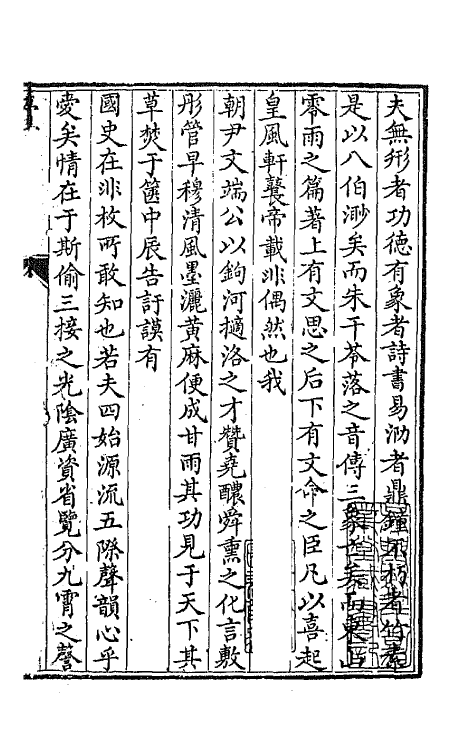 夫無形者功德有象者詩書易泐者鼎鐘不朽者竹素
是以八伯渺矣而朱干苓落之音傳三象亡矣而東山
零雨之篇著上有文思之后下有文命之臣凡以喜起
皇風軒鼚帝載非偶然也我
朝尹文端公以鉤河擿洛之才贊堯醲舜熏之化言敷
彤管早穆清風墨灑黃麻便成甘雨其功見于天下其
草焚于篋中辰告訏謨有
國史在非枚所敢知也若夫四始源流五際聲韻心乎
愛矣情在于斯偷三接之光陰廣資省覽分九霄之謦